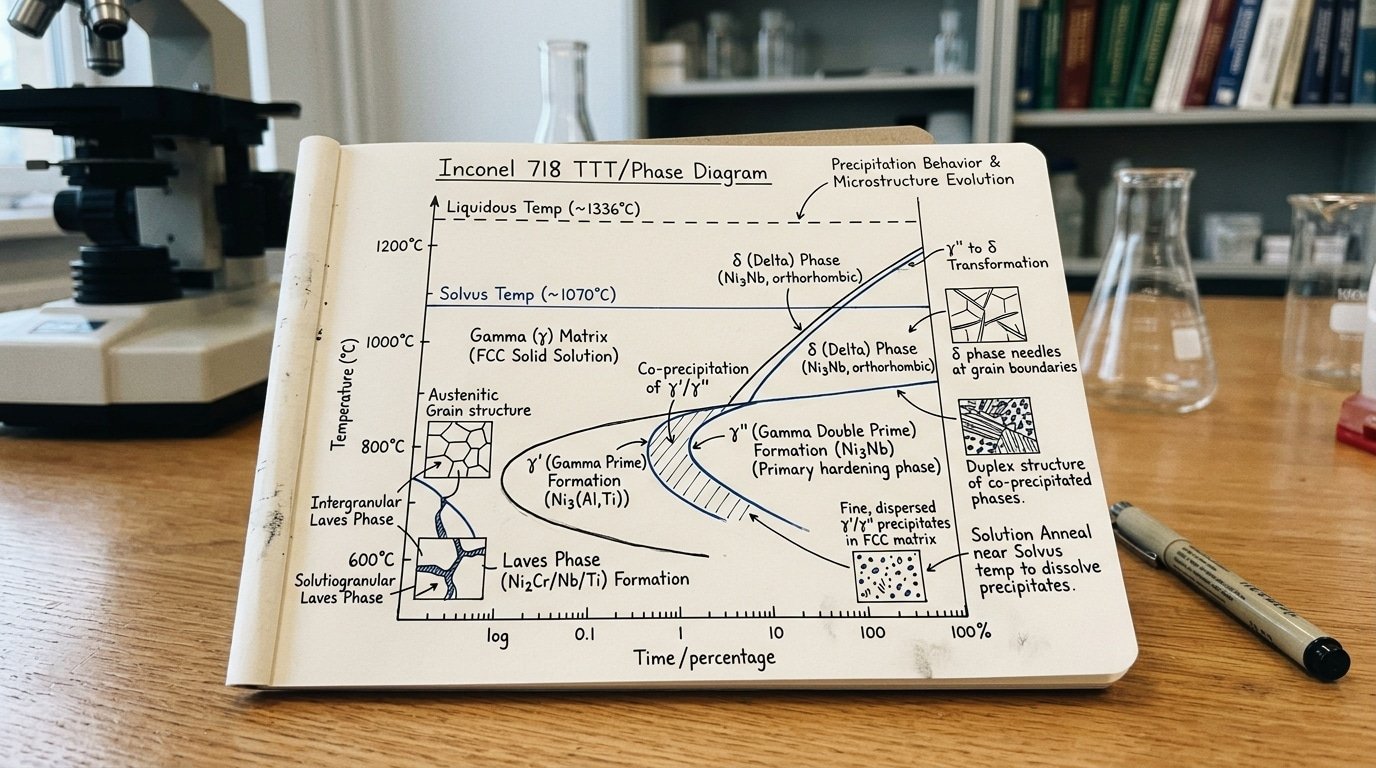 Inconel 718 TTT/Phase Diagram
Precipitation Behavior &
Microstructure Evolution
Liquidous Temp (~1336°C)
1200°C
δ (Delta) Phase
(Ni₃Nb, orthorhombic)
γ" to δ
Transformation
Solvus Temp (~1070°C)
1000°C
Gamma (γ) Matrix
(FCC Solid Solution)
δ (Delta) Phase
(Ni₃Nb, orthorhombic)
δ phase needles
at grain boundaries
Co-precipitation
of γ'/γ"
Temperature (°C)
Austenitic
Grain structure
800°C
γ' (Gamma Prime)
Formation
(Ni₃(Al,Ti))
γ" (Gamma Double Prime)
Formation (Ni₃Nb)
(Primary hardening phase)
Duplex structure
of co-precipitated
phases.
Intergranular
Laves Phase
Fine, dispersed
γ'/γ" precipitates
in FCC matrix
Solution Anneal
near Solvus
temp to dissolve
precipitates.
600°C
Solutiogranular
Laves Phase
Laves Phase
(Ni₂Cr/Nb/Ti) Formation
log
0.1
1
10
100
100%
Time/percentage